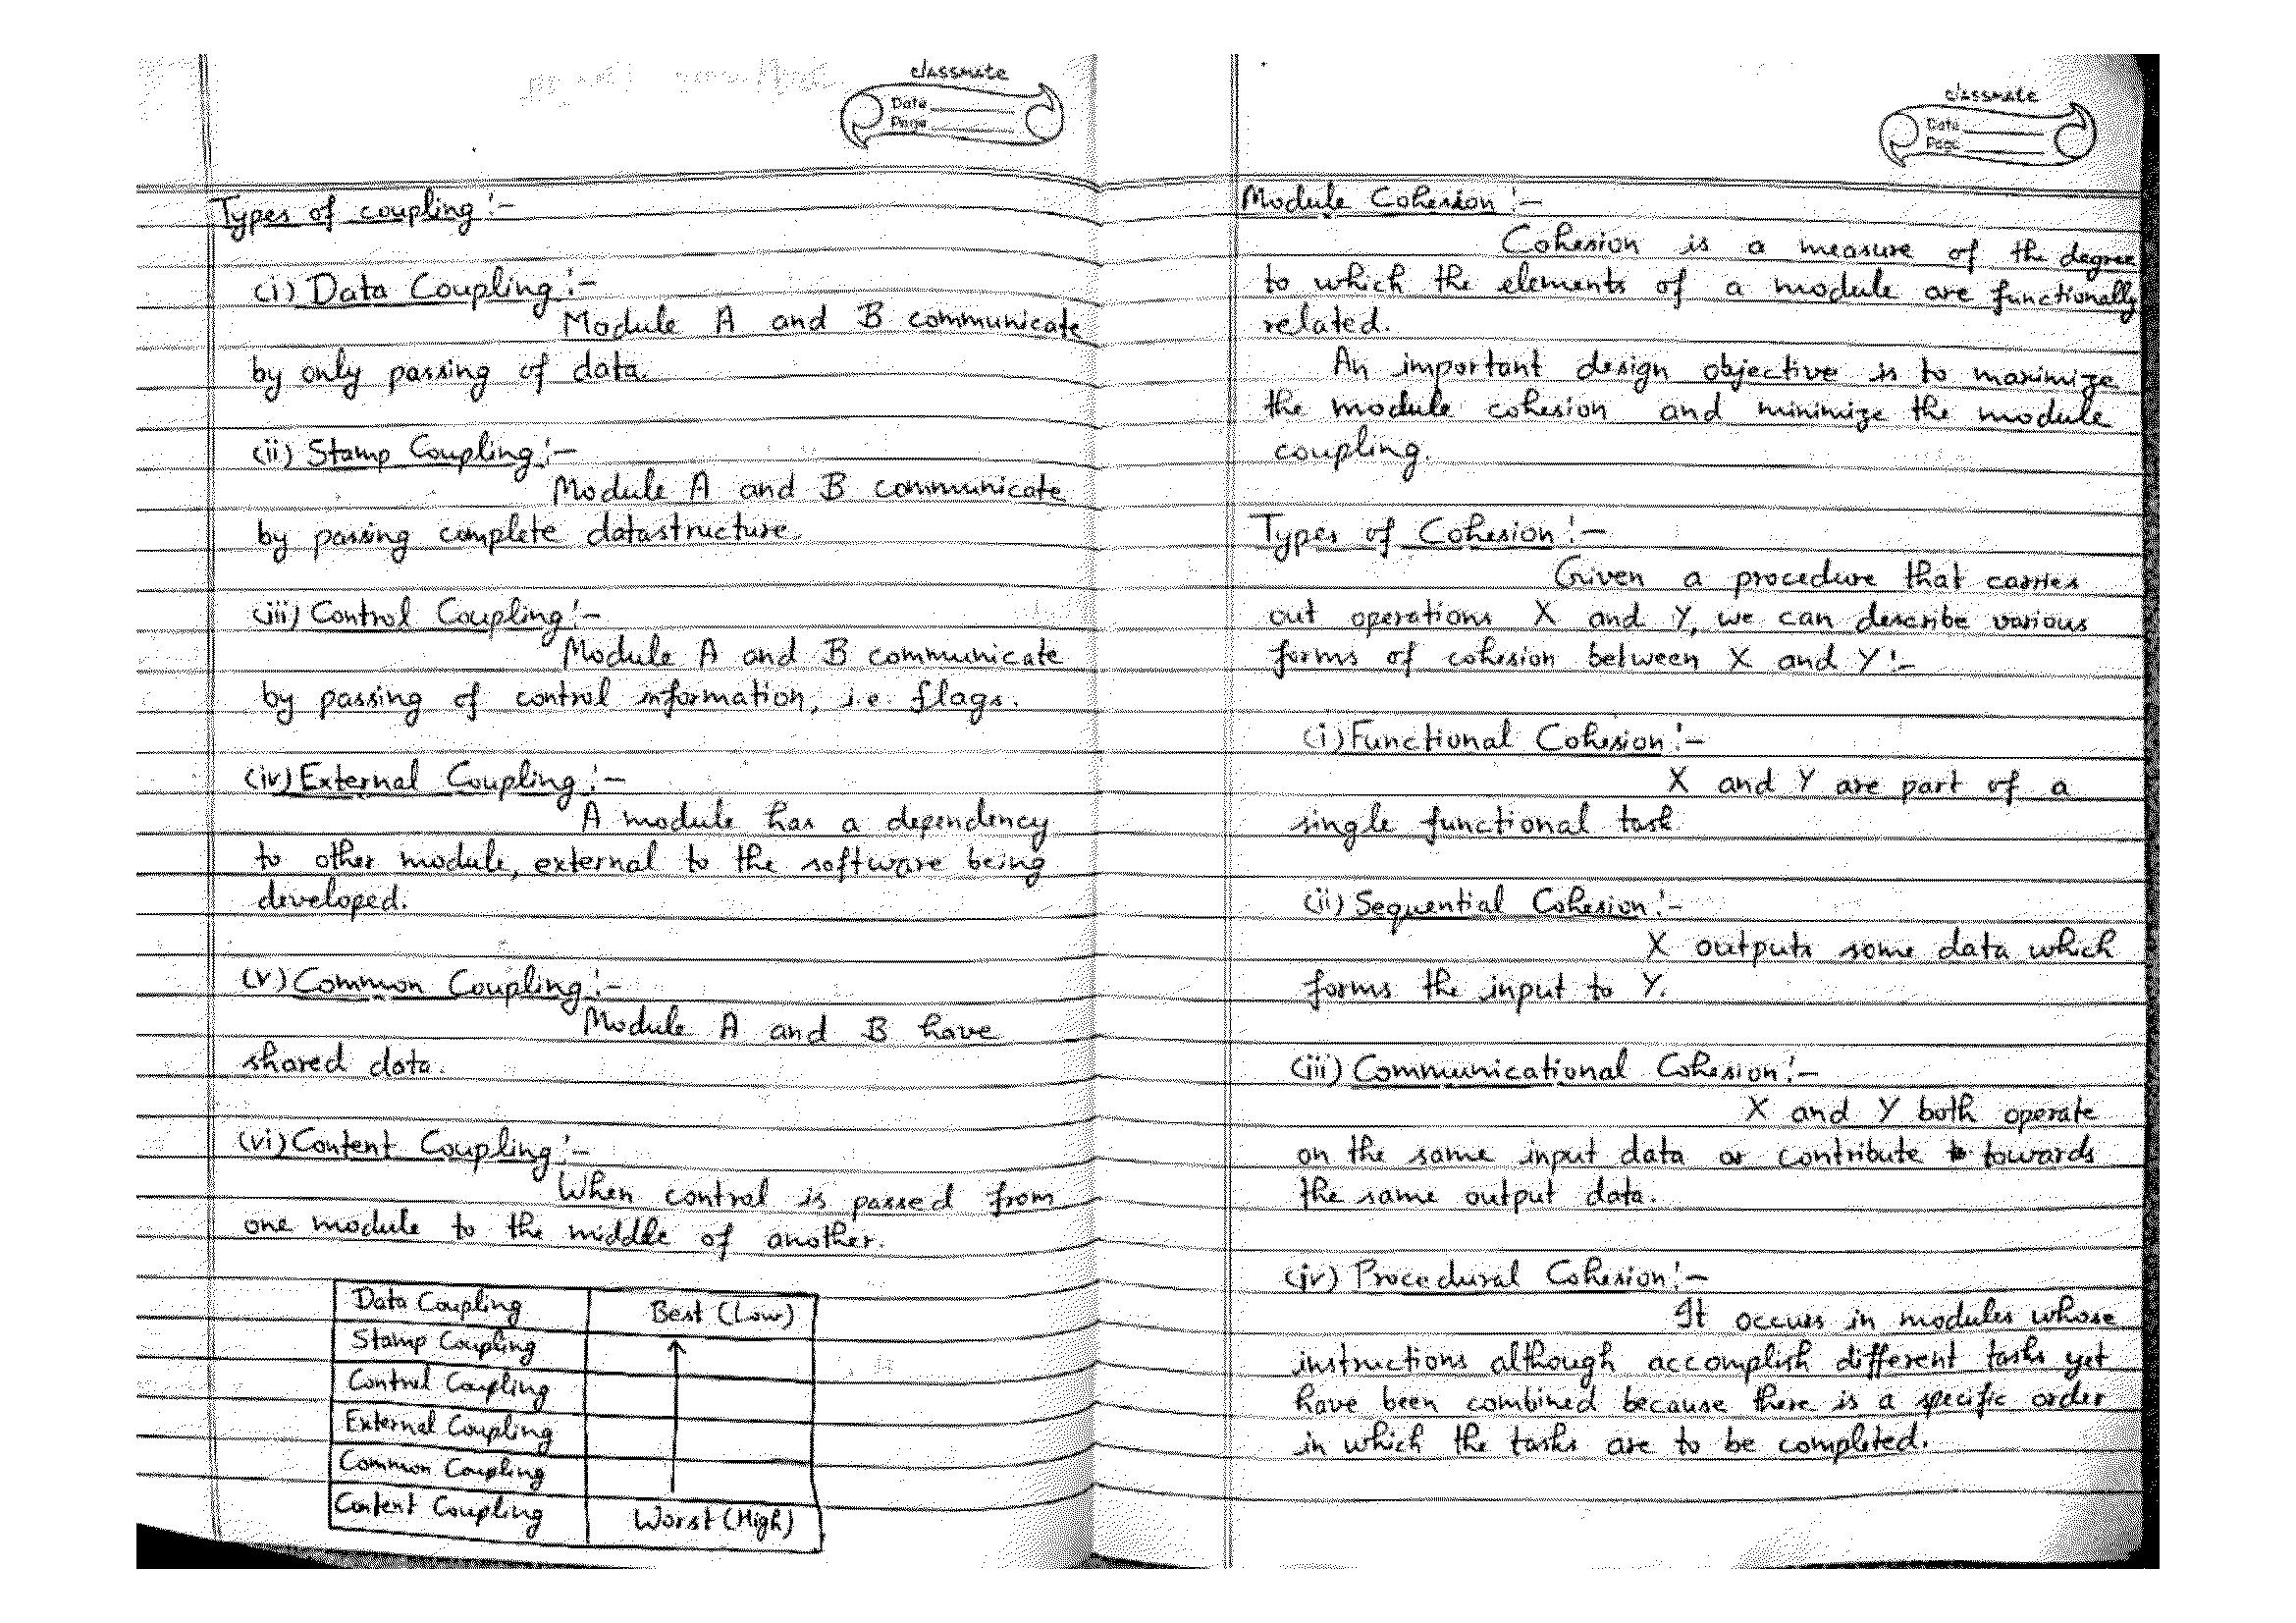 classmate
Date
Page
Types of coupling :-
(i) Data Coupling :-
Module A and B communicate
by only passing of data.
(ii) Stamp Coupling :-
Module A and B communicate
by passing complete datastructure.
(iii) Control Coupling :-
Module A and B communicate
by passing of control information, i.e. flags.
(iv) External Coupling :-
A module has a dependency
to other module, external to the software being
developed.
(v) Common Coupling :-
Module A and B have
shared data.
(vi) Content Coupling :-
When control is passed from
one module to the middle of another.
Data Coupling Best (Low)
Stamp Coupling
Control Coupling
External Coupling
Common Coupling
Content Coupling Worst (High)
classmate
Date
Page
Module Cohesion :-
Cohesion is a measure of the degree
to which the elements of a module are functionally
related.
An important design objective is to maximize
the module cohesion and minimize the module
coupling.
Types of Cohesion :-
Given a procedure that carries
out operations X and Y, we can describe various
forms of cohesion between X and Y :-
(i) Functional Cohesion :-
X and Y are part of a
single functional task
(ii) Sequential Cohesion :-
X outputs some data which
forms the input to Y.
(iii) Communicational Cohesion :-
X and Y both operate
on the same input data or contribute towards
the same output data.
(iv) Procedural Cohesion :-
It occurs in modules whose
instructions although accomplish different tasks yet
have been combined because there is a specific order
in which the tasks are to be completed.